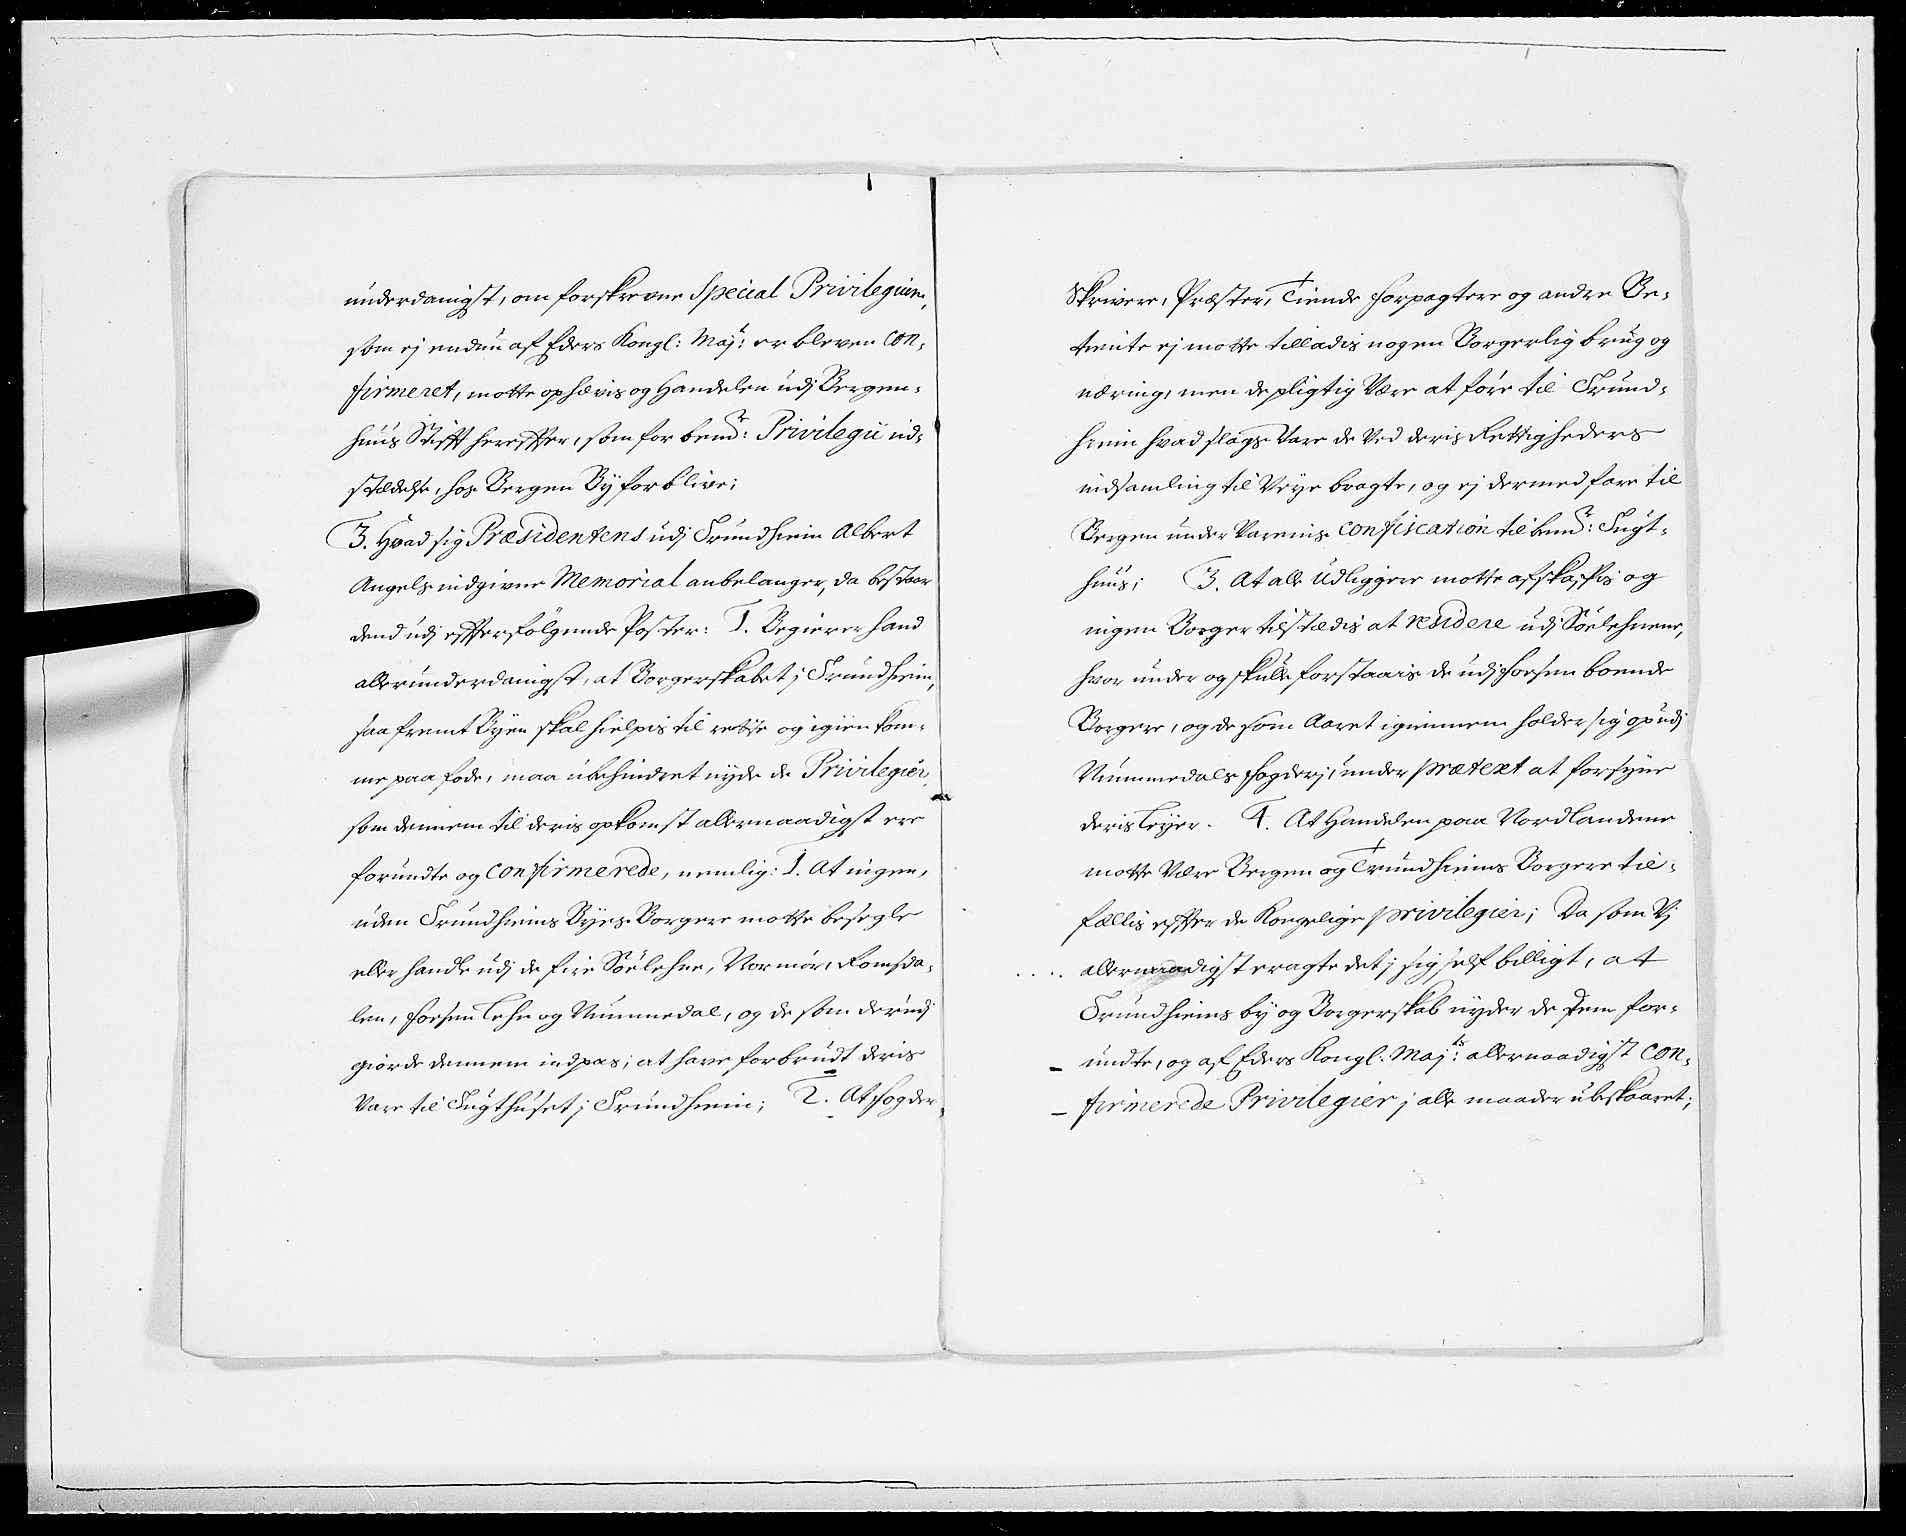 underdanigst, om forskrevne Special Privilegier,
som ej endnu af Eders Kongl: Maj:t er bleven con-
firmeret, motte ophævis og Handelen udj Bergen-
huus Stifft hereffter, som for bemte: Privilegii ud-
stædelse, hos Bergen By forblive;
3. Hvad sig Præsidentens udj Trundhiem Albert
Angels indgivne Memorial anbelanger, da bestaar
dend udj effterfölgende Poster: 1. Begierer hand
allerunderdanigst, at Borgerskabet j Trundhiem,
saa fremt Byen skal hielpis til rette og igien kom-
me paa fode, maa ubehindret nyde de Privilegier,
som dennem til deris opkomst allernaadigst ere
forundte og confirmerede, nemlig: 1. At ingen,
uden Trundhiems Byes Borgere motte besegle
eller handle udj de fire Söelehne, Normör, Romsda-
len, Fosen Lehn og Nummedal, og de som derudj
giörde dennem indpas, at have forbrudt deris
Vare til Tugthuset j Trundhiem; 2. At Fogder,
Skrivere, Præster, Tiende Forpagtere og andre Be-
tiente ej motte tilladis nogen Borgerlig brug og
næring, men de pligtig Være at före til Trund-
hiem hvad slags Vare de Ved deris Rettigheders
indsamling til Veye bragte, og ej dermed fare til
Bergen under Varenis confiscation til bemte: Tugt-
huus; 3. At alle Udliggere motte afskaffis og
ingen Borger tilstædis at residere udj Söelehnene,
hvor under og skulle forstaais de udj Fosen boende
Borgere, og de som Aaret igiennem holder sig op udj
Nummedals Fogderj, under prætext at forsyne
deris Leyer. 4. At Handelen paa Nordlandene
motte Være Bergen og Trundhiems Borgere til-
fællis effter de Kongelige privilegier; Da som Vj
allernaadigst eragte det j sig self billigt, at
Trundhiems by og Borgerskab nyder de dem for-
undte, og af Eders Kongl: Maj:ts allernaadigst con-
firmerede Privilegier j alle maader ubeskaaret;